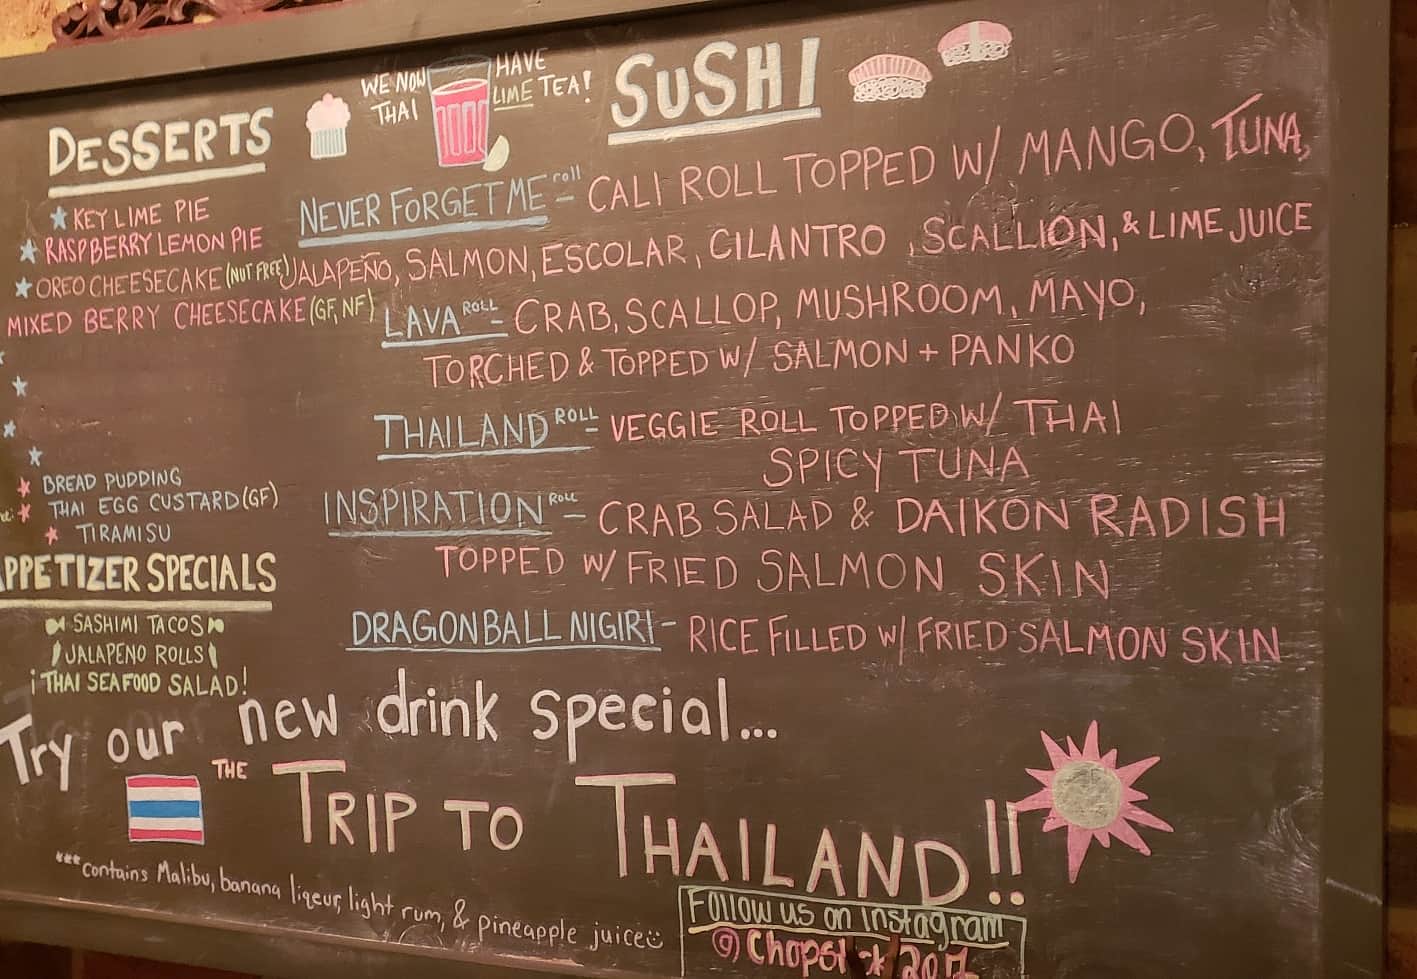 WE NOW HAVE
THAI LIME TEA!
DESSERTS
★ KEY LIME PIE
★ RASPBERRY LEMON PIE
★ OREO CHEESECAKE (NUT FREE)
MIXED BERRY CHEESECAKE (GF, NF)
★ BREAD PUDDING
★ THAI EGG CUSTARD (GF)
★ TIRAMISU
PPETIZER SPECIALS
SASHIMI TACOS
JALAPENO ROLLS
¡THAI SEAFOOD SALAD!
SUSHI
NEVER FORGET ME roll - CALI ROLL TOPPED W/ MANGO, TUNA,
JALAPEÑO, SALMON, ESCOLAR, CILANTRO, SCALLION, & LIME JUICE
LAVA ROLL - CRAB, SCALLOP, MUSHROOM, MAYO,
TORCHED & TOPPED W/ SALMON + PANKO
THAILAND ROLL - VEGGIE ROLL TOPPED W/ THAI
SPICY TUNA
INSPIRATION ROLL - CRAB SALAD & DAIKON RADISH
TOPPED W/ FRIED SALMON SKIN
DRAGONBALL NIGIRI - RICE FILLED W/ FRIED SALMON SKIN
Try our new drink special...
THE TRIP TO THAILAND!!
***contains Malibu, banana liqeur, light rum, & pineapple juice
Follow us on instagram